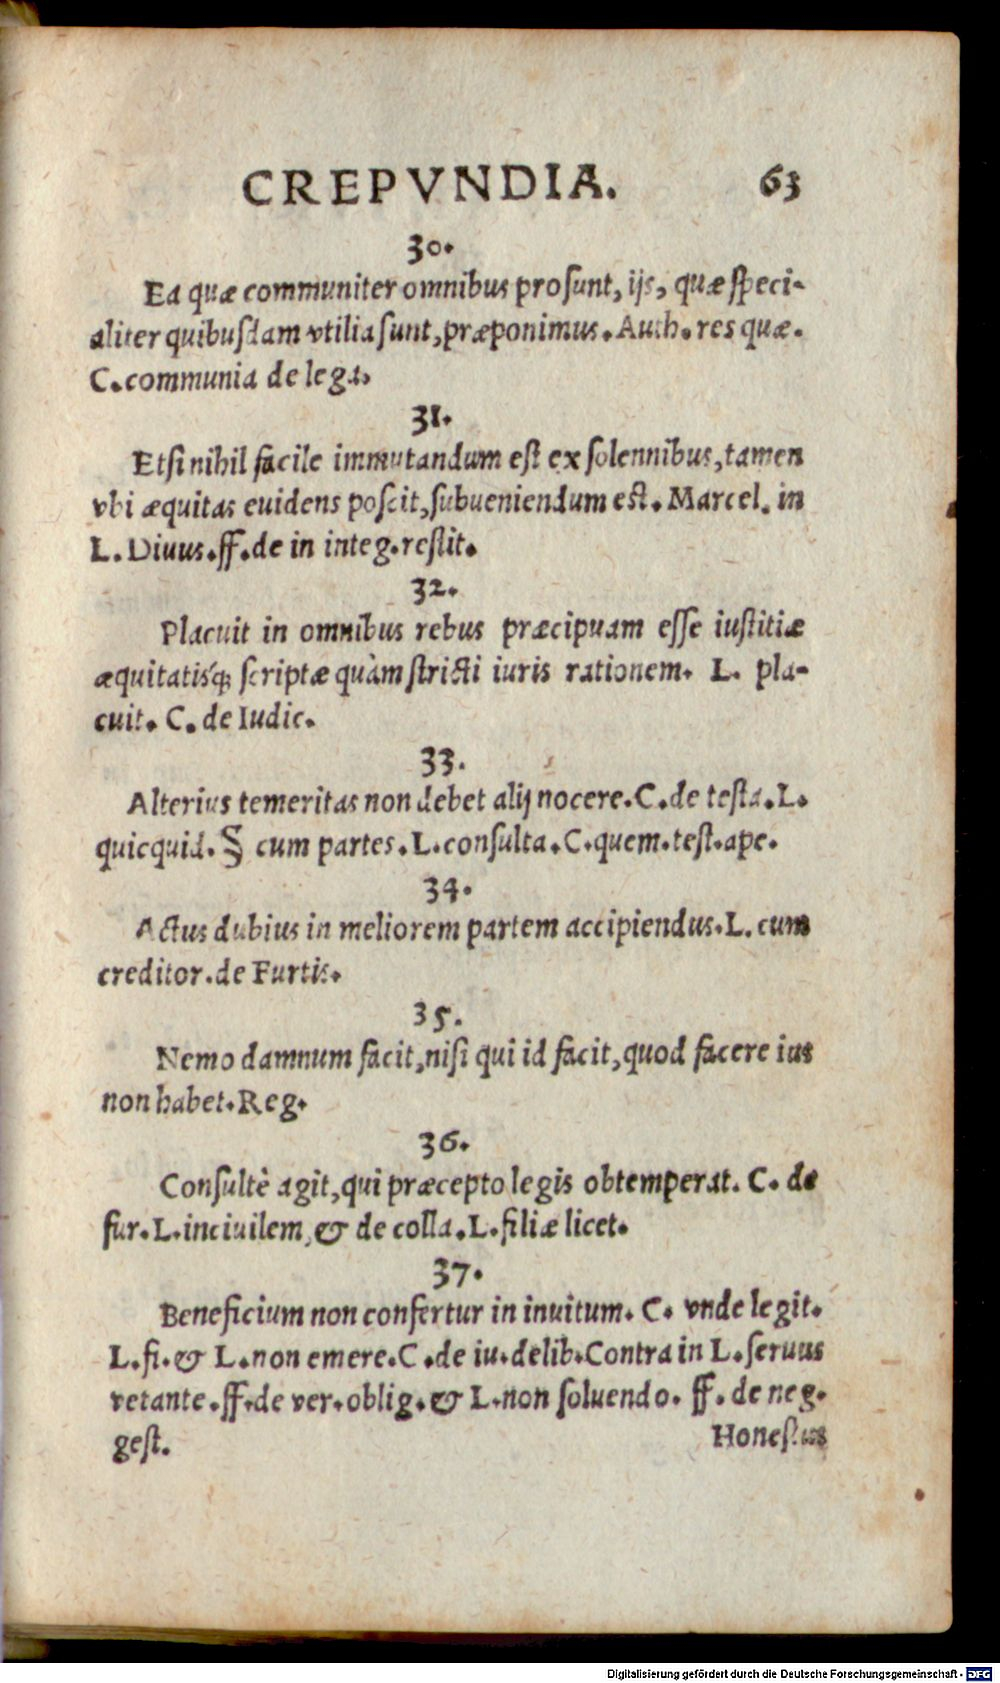 CREPVNDIA. 63
30.
Ea quæ communiter omnibus prosunt, ijs, quæ speci-
aliter quibusdam vtilia sunt, præponimus. Auth. res quæ.
C. communia de lega.
31.
Etsi nihil facile immutandum est ex solennibus, tamen
vbi æquitas euidens poscit, subueniendum est. Marcel. in
L. Diuus. ff. de in integ. restit.
32.
Placuit in omnibus rebus præcipuam esse iustitiæ
æquitatisq́; scriptæ quàm stricti iuris rationem. L. pla-
cuit. C. de Iudic.
33.
Alterius temeritas non debet alij nocere. C. de testa. L.
quicquid. § cum partes. L. consulta. C. quem. test. ape.
34.
Actus dubius in meliorem partem accipiendus. L. cum
creditor. de Furtis.
35.
Nemo damnum facit, nisi qui id facit, quod facere ius
non habet. Reg.
36.
Consultè agit, qui præcepto legis obtemperat. C. de
fur. L. inciuilem, & de colla. L. filiæ licet.
37.
Beneficium non confertur in inuitum. C. vnde legit.
L. fi. & L. non emere. C. de iu. delib. Contra in L. seruus
vetante. ff. de ver. oblig. & L. non soluendo. ff. de neg.
gest. Honestius
Digitalisierung gefördert durch die Deutsche Forschungsgemeinschaft - DFG